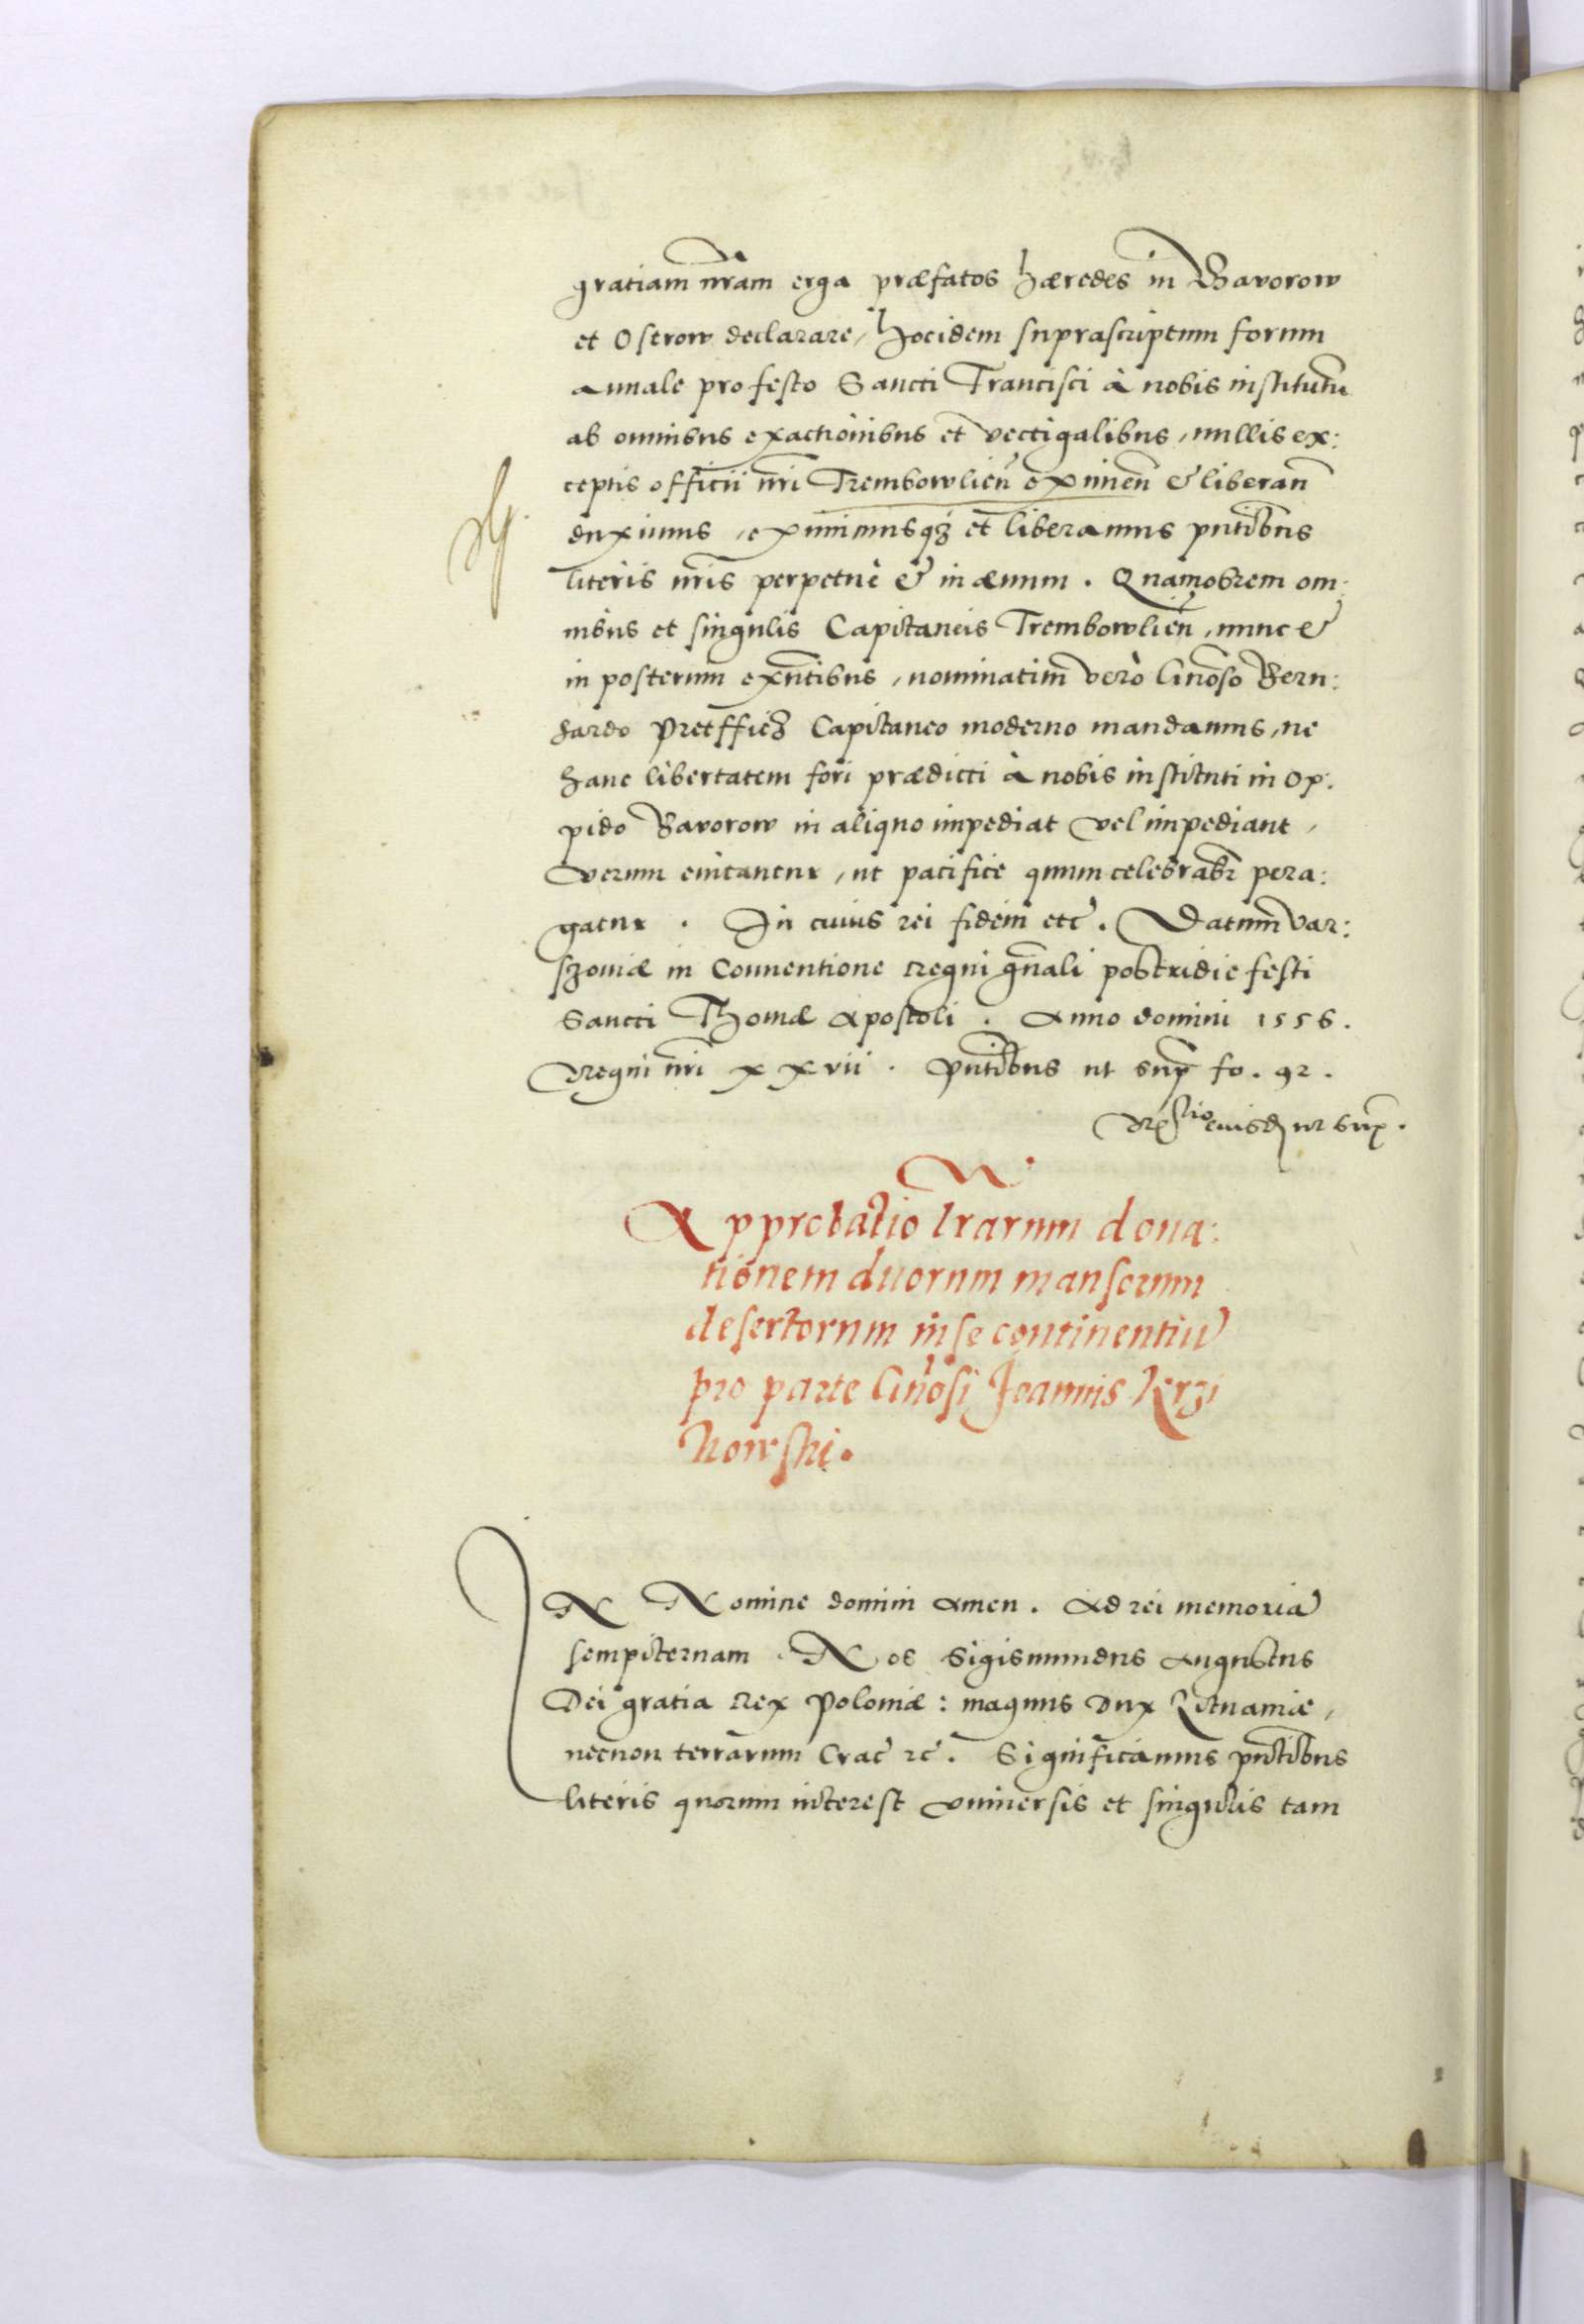 gratiam nrãm erga præfatos hæredes in Baworow
et Ostrow declarare, hocidem suprascriptum forum
annale pro festo Sancti Francisci à nobis institutũ
ab omnibus exactionibus et vectigalibus, nullis ex:
ceptis officii nrĩ Trembowlieñ eximeñ & liberañ
duximus, eximimusq₃ et liberamus pñtibus
literis nrĩs perpetuè & in ævum. Quamobrem om:
nibus et singulis Capitaneis Trembowlieñ, nunc &
in posterum exñtibus, nominatim verò Gñoso Bern:
hardo Pretfficz Capitaneo moderno mandamus, ne
hanc libertatem fori prædicti à nobis instituti in op:
pido Baworow in aliquo impediat vel impediant,
verum enitantur, ut pacifice quum celebrabr̃ pera:
gatur. In cuius rei fidem etc̃. Datum Var:
szoviæ in Conventione Regni gñali postridie festi
Sancti Thomæ Apostoli. Anno domini 1556.
Regni nrĩ xxvii. Pñtibus ut sup̃ fo. 92.
Rel̃tio eiusd ut sup̃.
Approbatio lr̃arum dona:
tionem duorum mansorum
desertorum in se continentiũ
pro parte Gñosi Joannis Krzi
kowski.
IN Nomine domini Amen. Ad rei memoriã
sempiternam. Nos Sigismundus Augustus
Dei gratia Rex Poloniæ: magnus Dux Lituaniæ,
necnon terrarum Crac̃ rc̃. Significamus pñtibus
literis quorum interest universis et singulis tam